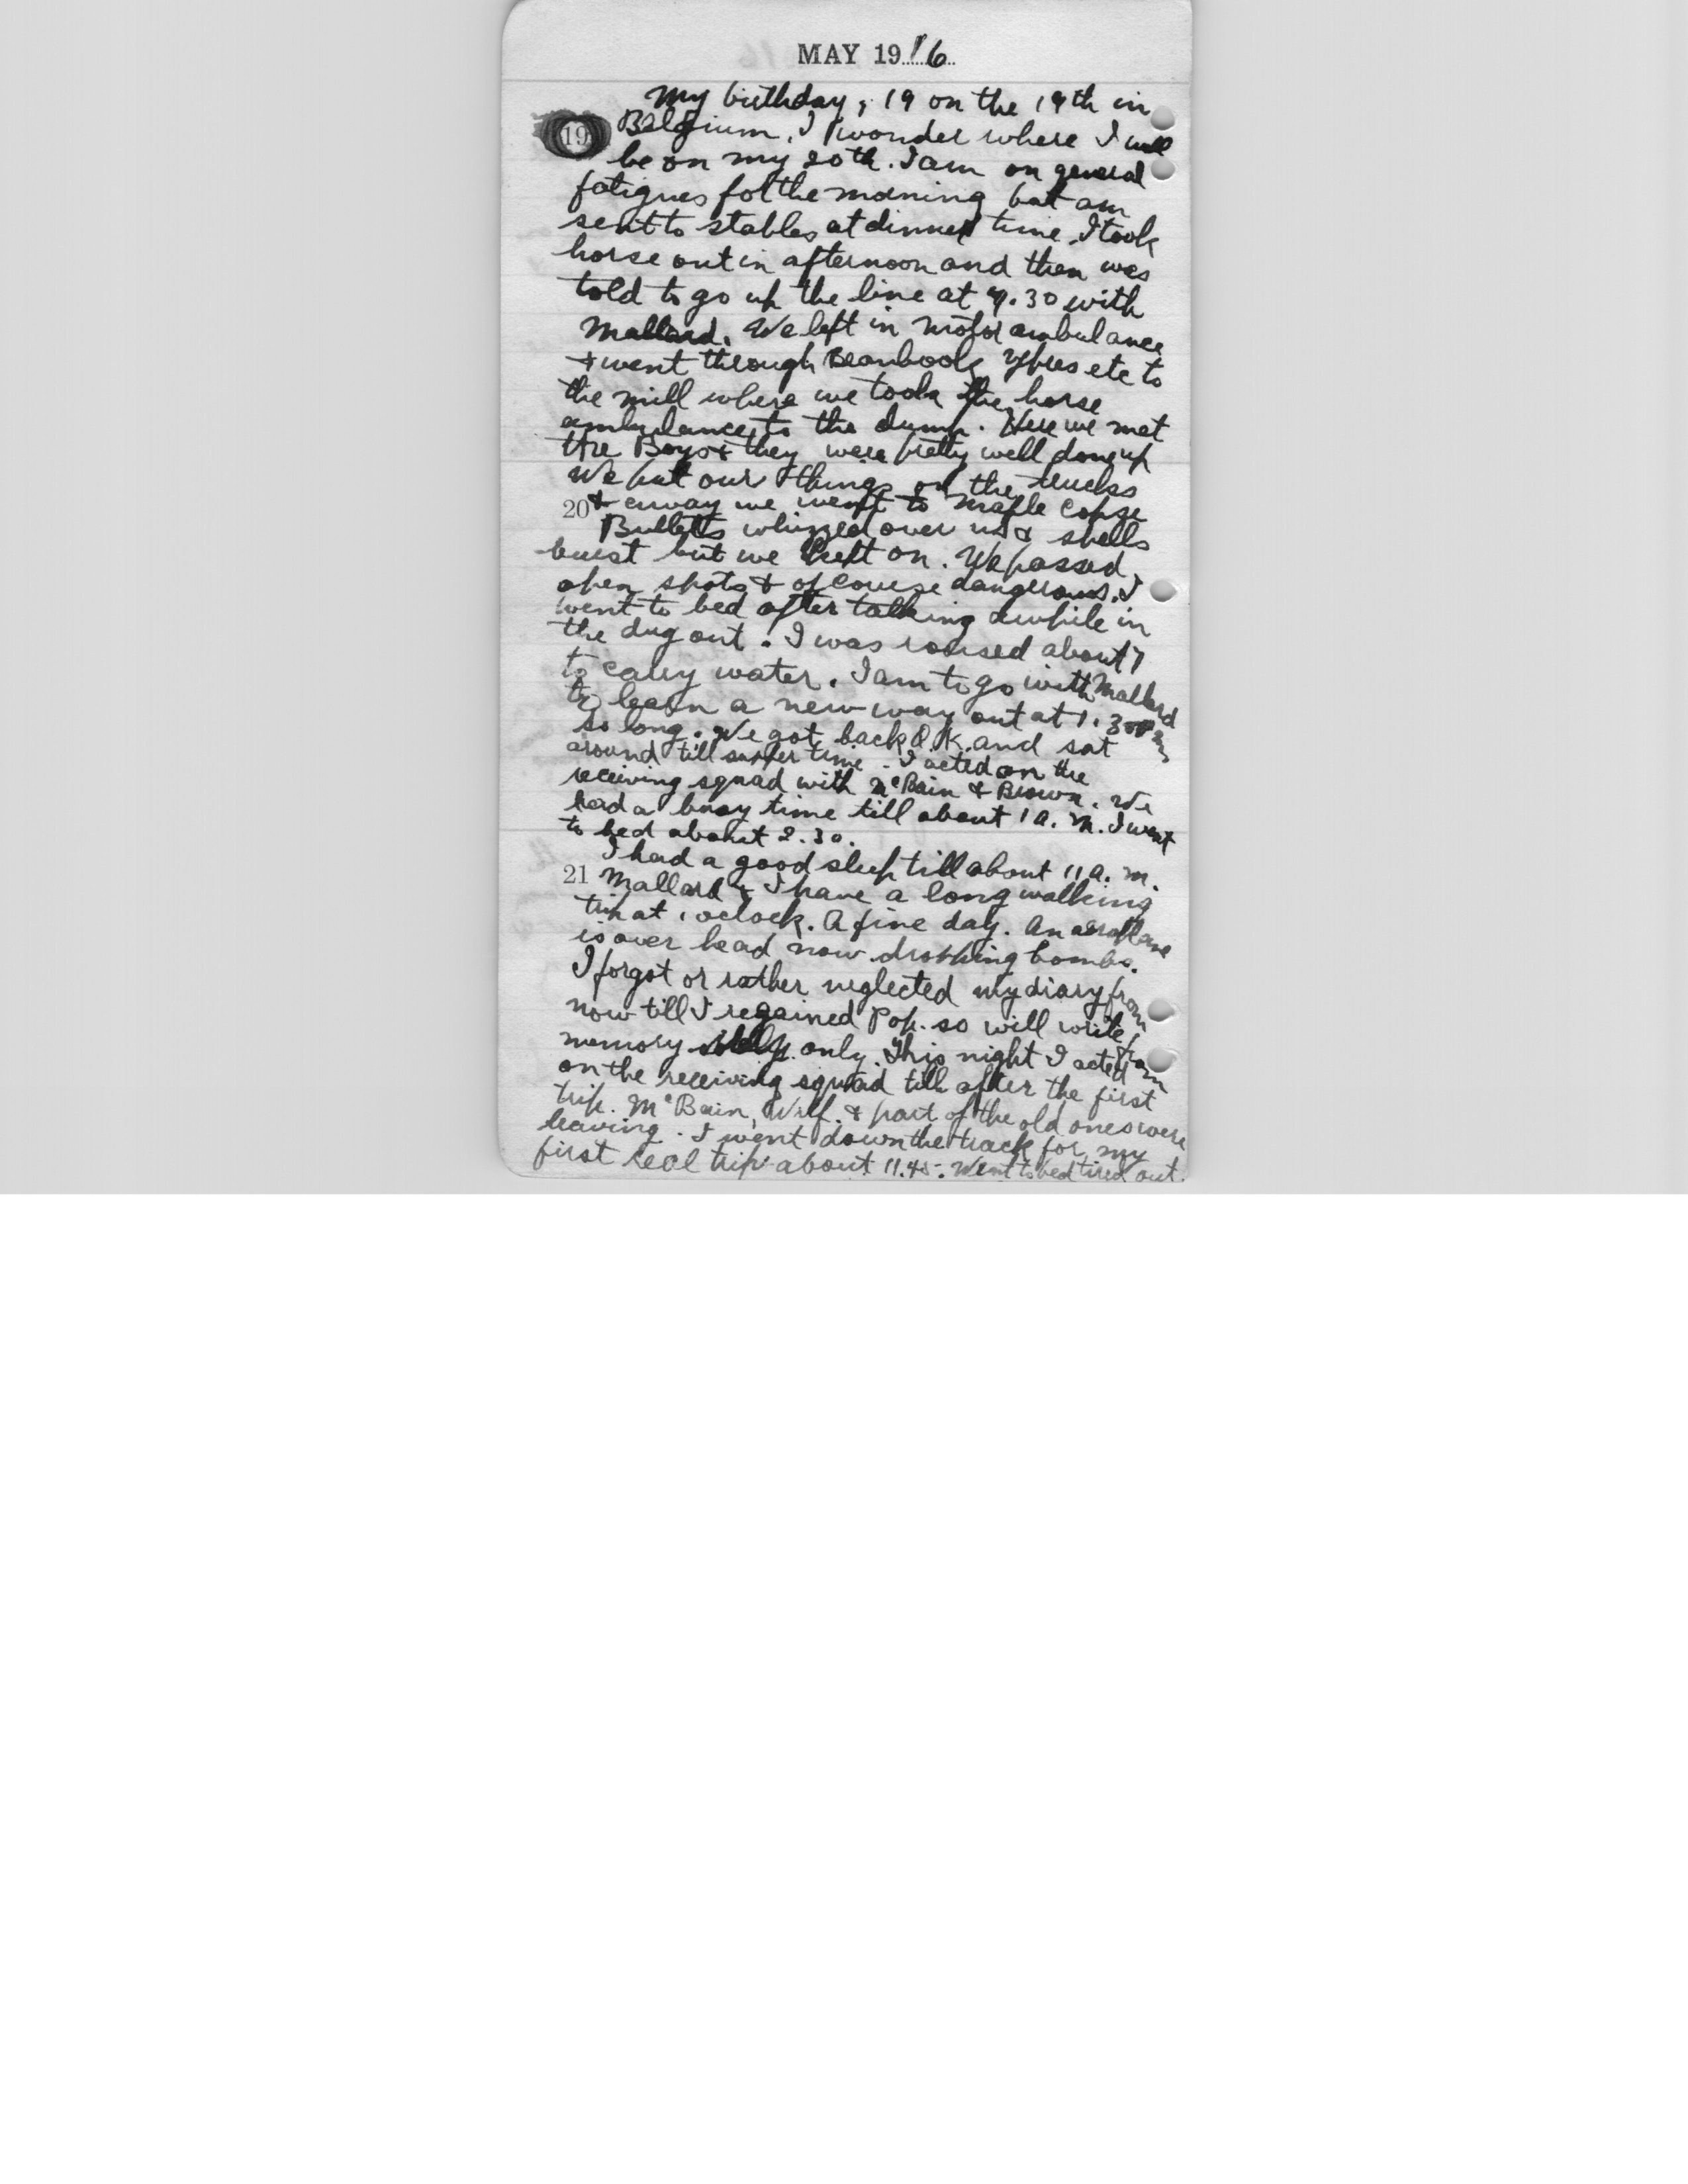 MAY 1916
My birthday, 19 on the 19th in
19 Belgium. I wonder where I will
be on my 20th. I am on general
fatigues for the morning but am
sent to stables at dinner time. I took
horse out in afternoon and then was
told to go up the line at 7.30 with
Mallard. We left in motor ambulance
& went through Ypres etc to
the mill where we took the horse
ambulance to the dump. Here we met
the Boys & they were pretty well done up
We put our things on the trucks
20 & away we went to Maple Copse
Bullets whizzed over us & shells
burst but we kept on. We passed
open spots & of course dangerous. I
went to bed after talking awhile in
the dug out. I was roused about 7
to carry water. I am to go with Mallard
to learn a new way out at 1.30 pm
so long. We got back O.K. and sat
around till supper time. I acted on the
receiving squad with McBain & Brown. We
had a busy time till about 1 a.m. I went
to bed about 2.30.
I had a good sleep till about 11 a.m.
21 Mallard & I have a long walking
trip at 1 oclock. A fine day. An aeroplane
is over head now dropping bombs.
I forgot or rather neglected my diary from
now till I regained Pop. so will write from
memory only. This night I acted
on the receiving squad till after the first
trip. McBain, Wilf. & part of the old ones were
leaving. I went down the track for my
first real trip about 11.45. Went to bed tired out.